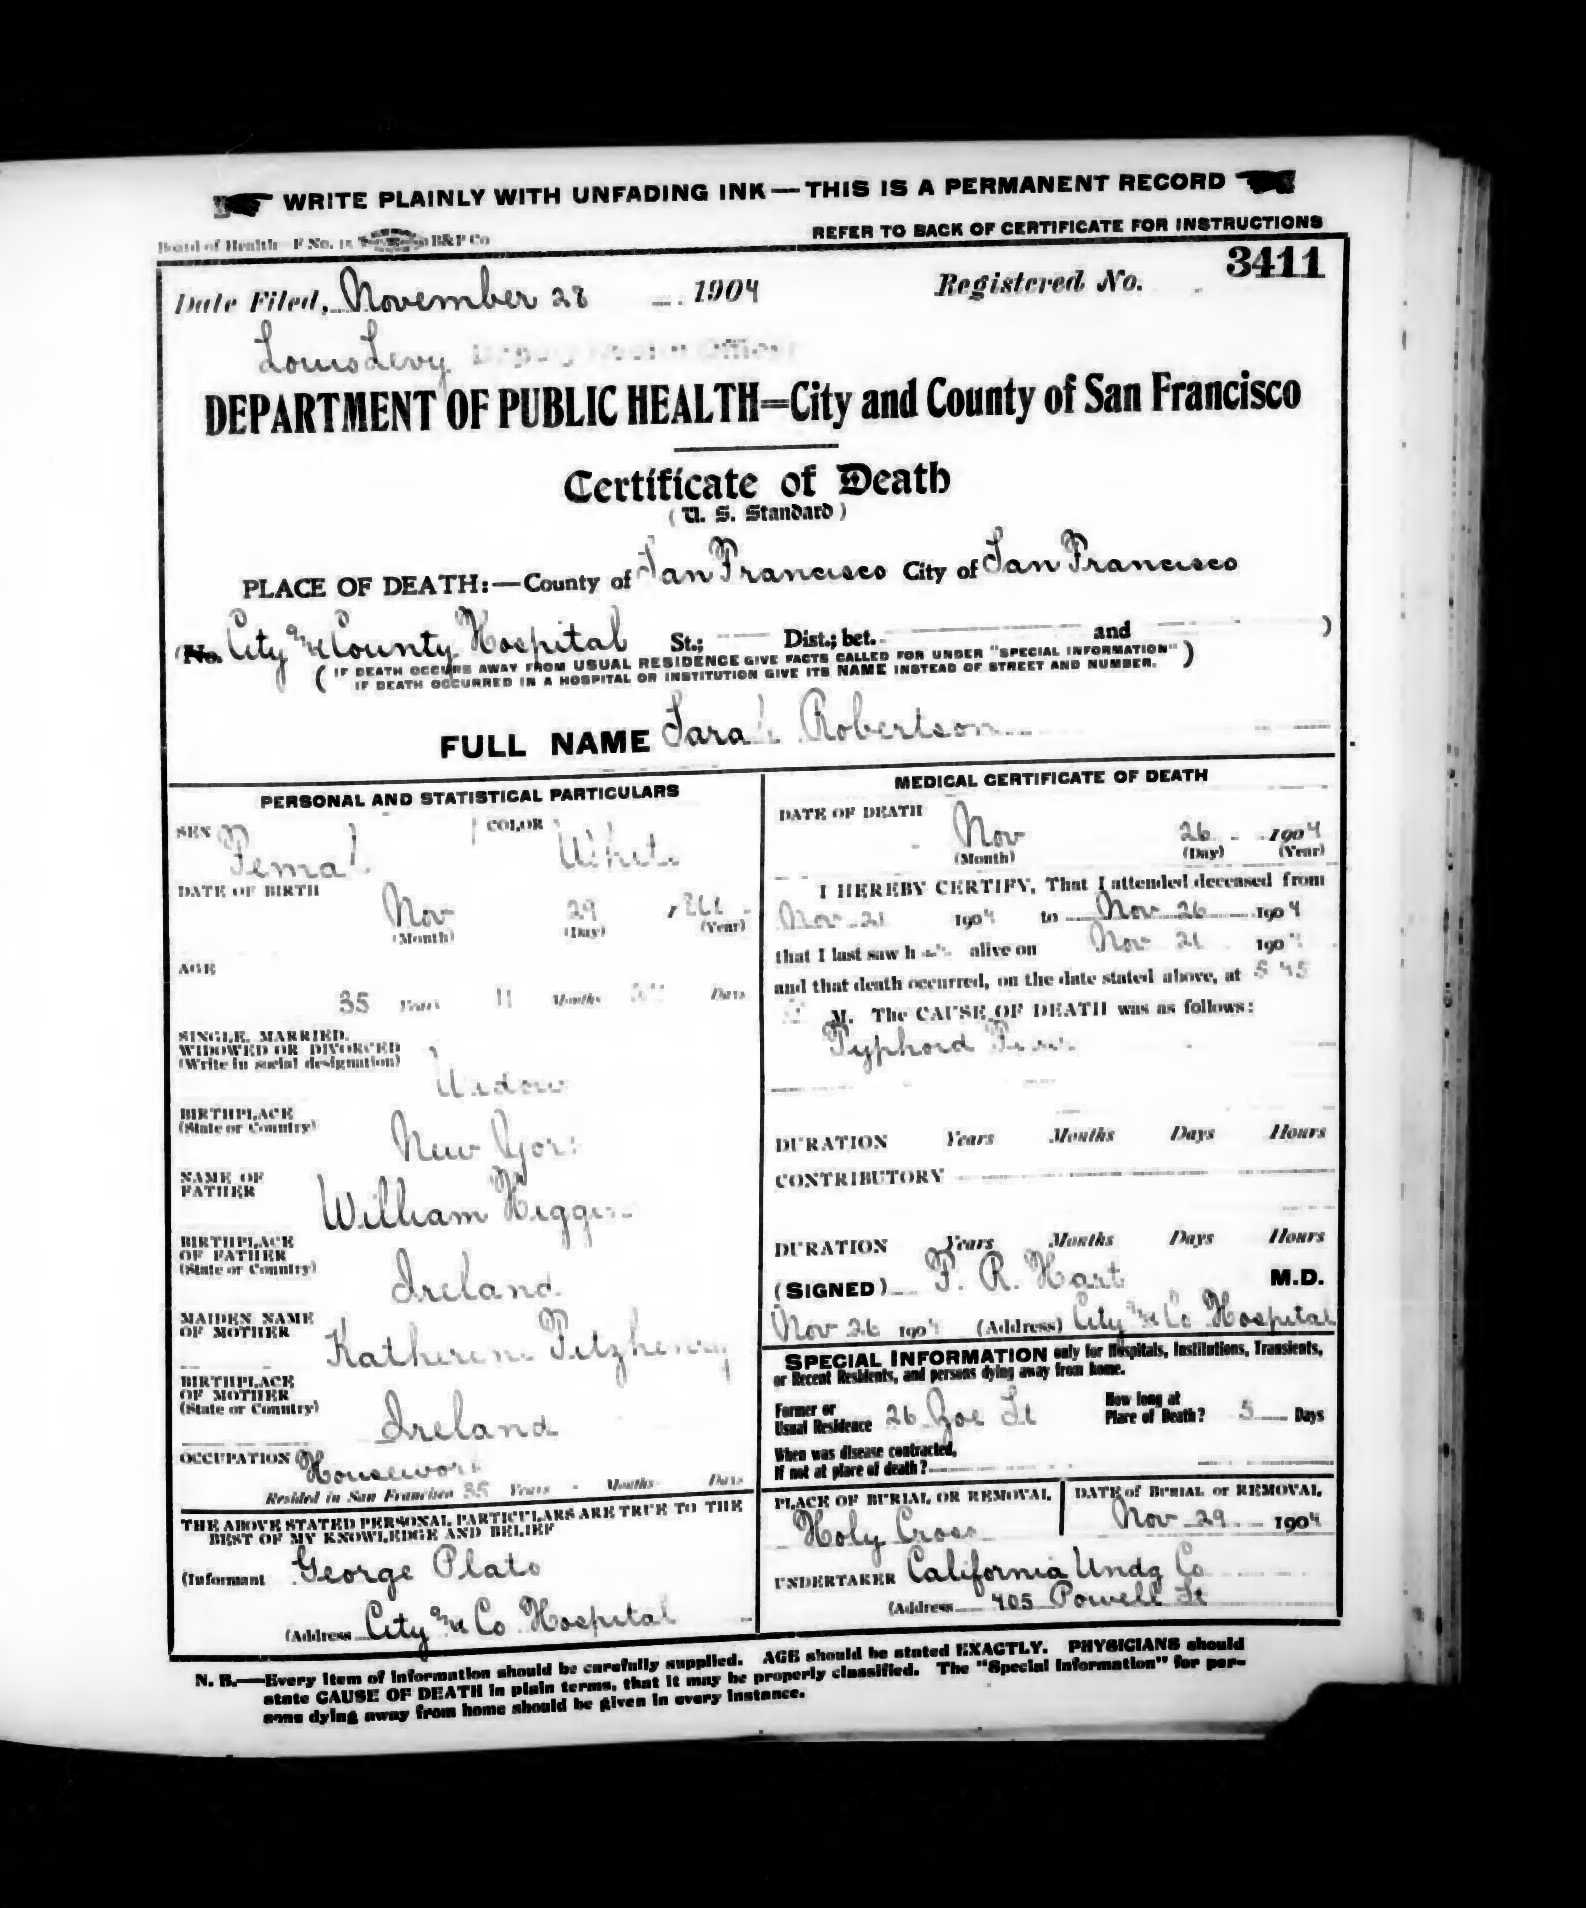 WRITE PLAINLY WITH UNFADING INK—THIS IS A PERMANENT RECORD
Board of Health—F No. 15 B&P Co
REFER TO BACK OF CERTIFICATE FOR INSTRUCTIONS
Date Filed, November 28 1904 Registered No. 3411
Louis Levy Deputy Health Officer
DEPARTMENT OF PUBLIC HEALTH=City and County of San Francisco
Certificate of Death
(U. S. Standard)
PLACE OF DEATH:—County of San Francisco City of San Francisco
(No. City and County Hospital St.; Dist.; bet. and )
( IF DEATH OCCURS AWAY FROM USUAL RESIDENCE GIVE FACTS CALLED FOR UNDER "SPECIAL INFORMATION" )
IF DEATH OCCURRED IN A HOSPITAL OR INSTITUTION GIVE ITS NAME INSTEAD OF STREET AND NUMBER.
FULL NAME Sarah Robertson
PERSONAL AND STATISTICAL PARTICULARS
SEX Femal
COLOR White
DATE OF BIRTH
Nov 29
(Month) (Day) (Year)
AGE
35 Years 11 Months Days
SINGLE, MARRIED,
WIDOWED OR DIVORCED
(Write in social designation)
Widow
BIRTHPLACE
(State or Country)
New York
NAME OF
FATHER
William
BIRTHPLACE
OF FATHER
(State or Country)
Ireland
MAIDEN NAME
OF MOTHER
Katherine Fitzhenry
BIRTHPLACE
OF MOTHER
(State or Country)
Ireland
OCCUPATION Housework
Resided in San Francisco 35 Years - Months Days
THE ABOVE STATED PERSONAL PARTICULARS ARE TRUE TO THE
BEST OF MY KNOWLEDGE AND BELIEF
(Informant George Plato
(Address City and Co Hospital
MEDICAL CERTIFICATE OF DEATH
DATE OF DEATH
Nov 26 1904
(Month) (Day) (Year)
I HEREBY CERTIFY, That I attended deceased from
Nov 21 1904 to Nov 26 1904
that I last saw h alive on Nov 190
and that death occurred, on the date stated above, at 5 45
M. The CAUSE OF DEATH was as follows:
Typhoid Fever
DURATION Years Months Days Hours
CONTRIBUTORY
DURATION Years Months Days Hours
(SIGNED) F. R. Hart M.D.
Nov 26 1904 (Address) City and Co Hospital
SPECIAL INFORMATION only for Hospitals, Institutions, Transients,
or Recent Residents, and persons dying away from home.
Former or
Usual Residence 26 Zoe St
How long at
Place of Death? 5 Days
When was disease contracted,
If not at place of death?
PLACE OF BURIAL OR REMOVAL
Holy Cross
DATE of BURIAL or REMOVAL
Nov 29 1904
UNDERTAKER California Undg Co
(Address 405 Powell St
N. B.—Every item of information should be carefully supplied. AGE should be stated EXACTLY. PHYSICIANS should
state CAUSE OF DEATH in plain terms, that it may be properly classified. The "Special Information" for per-
sons dying away from home should be given in every instance.